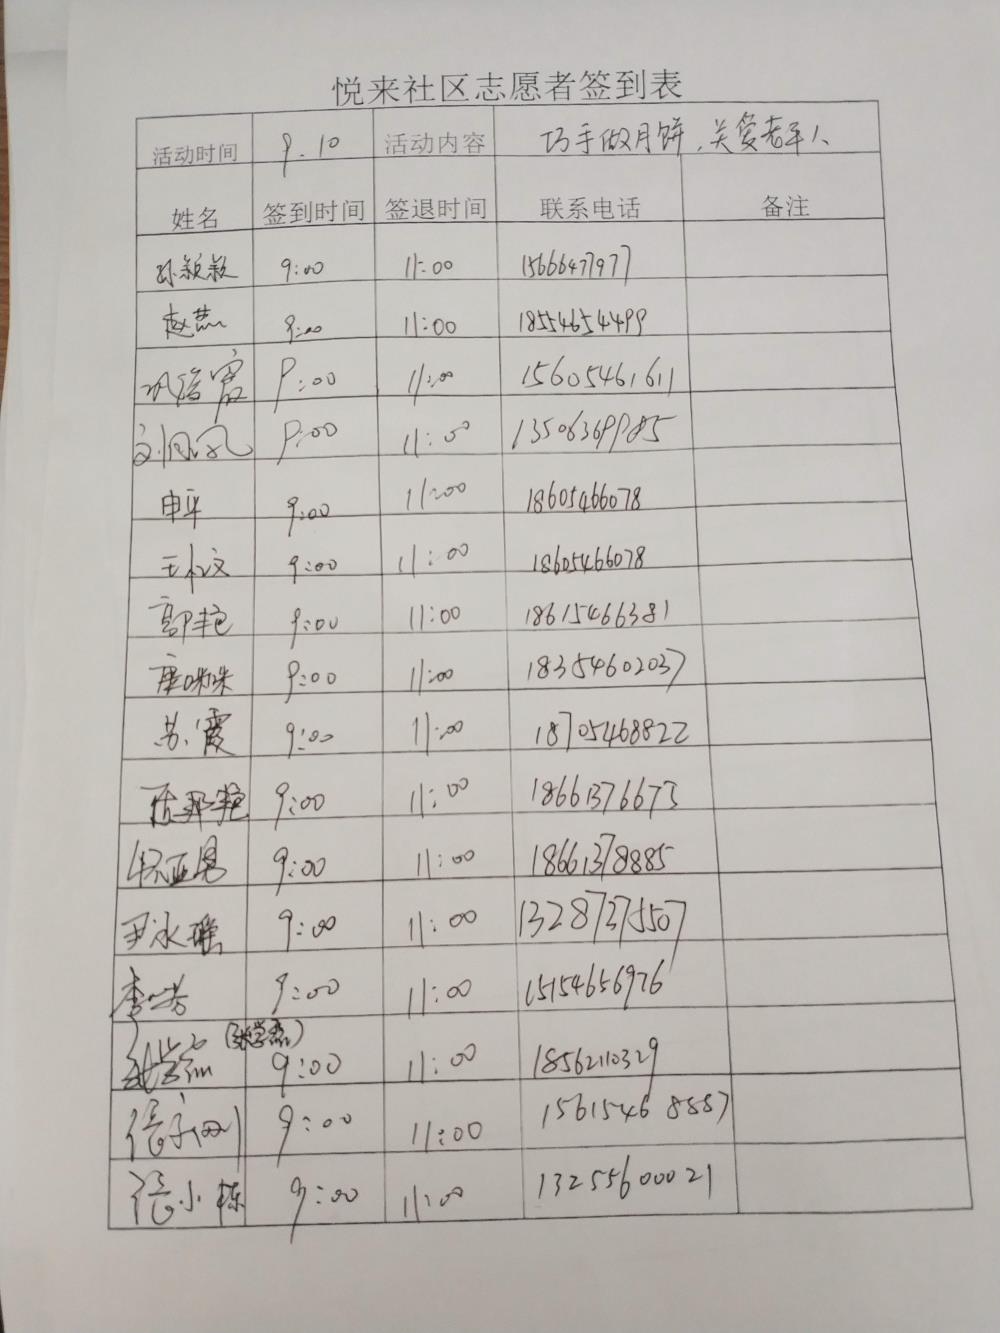 悦来社区志愿者签到表
活动时间 9.10 活动内容 巧手做月饼、关爱老年人
姓名 签到时间 签退时间 联系电话 备注
孙颖颖 9:00 11:00 15666477977
赵燕 9:00 11:00 18554654499
9:00 11:00 15605461611
刘凤 9:00 11:00 13506369985
申平 9:00 11:00 18605466078
王文 9:00 11:00 18605466078
郭艳 9:00 11:00 18615466381
唐咪咪 9:00 11:00 18354602037
苏霞 9:00 11:00 18705468822
艳 9:00 11:00 18661376673
亚男 9:00 11:00 18661378885
尹冰瑶 9:00 11:00 13287375507
李芳 9:00 11:00 15154656976
(张学燕)
9:00 11:00 18562110329
张子刚 9:00 11:00 15615468887
张小栋 9:00 11:00 13255600021